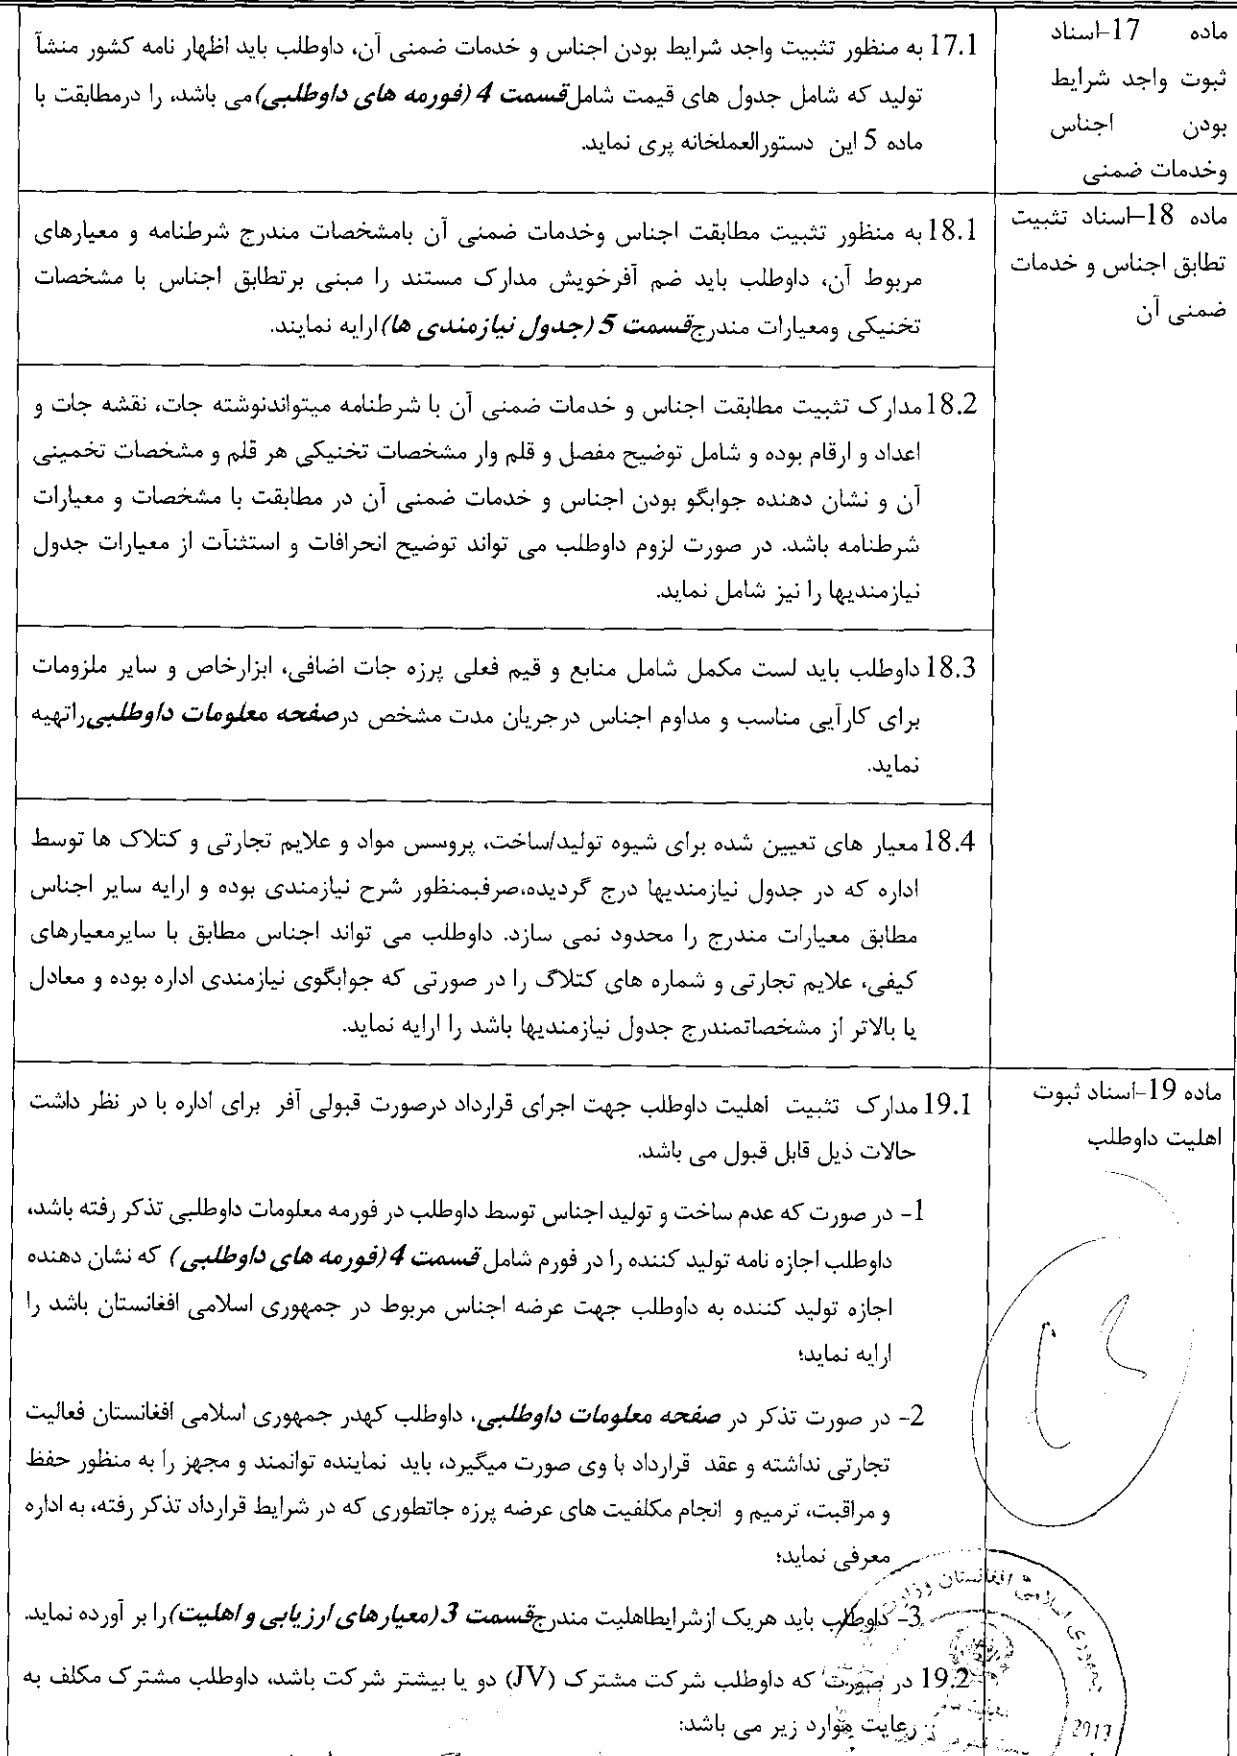 ماده 17-اسناد
ثبوت واجد شرایط
بودن اجناس
وخدمات ضمنی
17.1 به منظور تثبیت واجد شرایط بودن اجناس و خدمات ضمنی آن، داوطلب باید اظهار نامه کشور منشأ
تولید که شامل جدول های قیمت شامل قسمت 4 (فورمه های داوطلبی) می باشد، را درمطابقت با
ماده 5 این دستورالعملخانه پری نماید.
ماده 18-اسناد تثبیت
تطابق اجناس و خدمات
ضمنی آن
18.1 به منظور تثبیت مطابقت اجناس وخدمات ضمنی آن بامشخصات مندرج شرطنامه و معیارهای
مربوط آن، داوطلب باید ضم آفرخویش مدارک مستند را مبنی برتطابق اجناس با مشخصات
تخنیکی ومعیارات مندرج قسمت 5 (جدول نیازمندی ها) ارایه نمایند.
18.2 مدارک تثبیت مطابقت اجناس و خدمات ضمنی آن با شرطنامه میتواندنوشته جات، نقشه جات و
اعداد و ارقام بوده و شامل توضیح مفصل و قلم وار مشخصات تخنیکی هر قلم و مشخصات تخمینی
آن و نشان دهنده جوابگو بودن اجناس و خدمات ضمنی آن در مطابقت با مشخصات و معیارات
شرطنامه باشد. در صورت لزوم داوطلب می تواند توضیح انحرافات و استثنآت از معیارات جدول
نیازمندیها را نیز شامل نماید.
18.3 داوطلب باید لست مکمل شامل منابع و قیم فعلی پرزه جات اضافی، ابزارخاص و سایر ملزومات
برای کارآیی مناسب و مداوم اجناس درجریان مدت مشخص درصفحه معلومات داوطلبی راتهیه
نماید.
18.4 معیار های تعیین شده برای شیوه تولید/ساخت، پروسس مواد و علایم تجارتی و کتلاک ها توسط
اداره که در جدول نیازمندیها درج گردیده،صرفبمنظور شرح نیازمندی بوده و ارایه سایر اجناس
مطابق معیارات مندرج را محدود نمی سازد. داوطلب می تواند اجناس مطابق با سایرمعیارهای
کیفی، علایم تجارتی و شماره های کتلاگ را در صورتی که جوابگوی نیازمندی اداره بوده و معادل
یا بالاتر از مشخصاتمندرج جدول نیازمندیها باشد را ارایه نماید.
ماده 19-اسناد ثبوت
اهلیت داوطلب
19.1 مدارک تثبیت اهلیت داوطلب جهت اجرای قرارداد درصورت قبولی آفر برای اداره با در نظر داشت
حالات ذیل قابل قبول می باشد.
1- در صورت که عدم ساخت و تولید اجناس توسط داوطلب در فورمه معلومات داوطلبی تذکر رفته باشد،
داوطلب اجازه نامه تولید کننده را در فورم شامل قسمت 4 (فورمه های داوطلبی) که نشان دهنده
اجازه تولید کننده به داوطلب جهت عرضه اجناس مربوط در جمهوری اسلامی افغانستان باشد را
ارایه نماید؛
2- در صورت تذکر در صفحه معلومات داوطلبی، داوطلب کهدر جمهوری اسلامی افغانستان فعالیت
تجارتی نداشته و عقد قرارداد با وی صورت میگیرد، باید نماینده توانمند و مجهز را به منظور حفظ
و مراقبت، ترمیم و انجام مکلفیت های عرضه پرزه جاتطوری که در شرایط قرارداد تذکر رفته، به اداره
معرفی نماید؛
3- داوطلب باید هریک ازشرایطاهلیت مندرج قسمت 3 (معیارهای ارزیابی و اهلیت) را بر آورده نماید.
19.2 در صورت که داوطلب شرکت مشترک (JV) دو یا بیشتر شرکت باشد، داوطلب مشترک مکلف به
رعایت موارد زیر می باشد:
2013